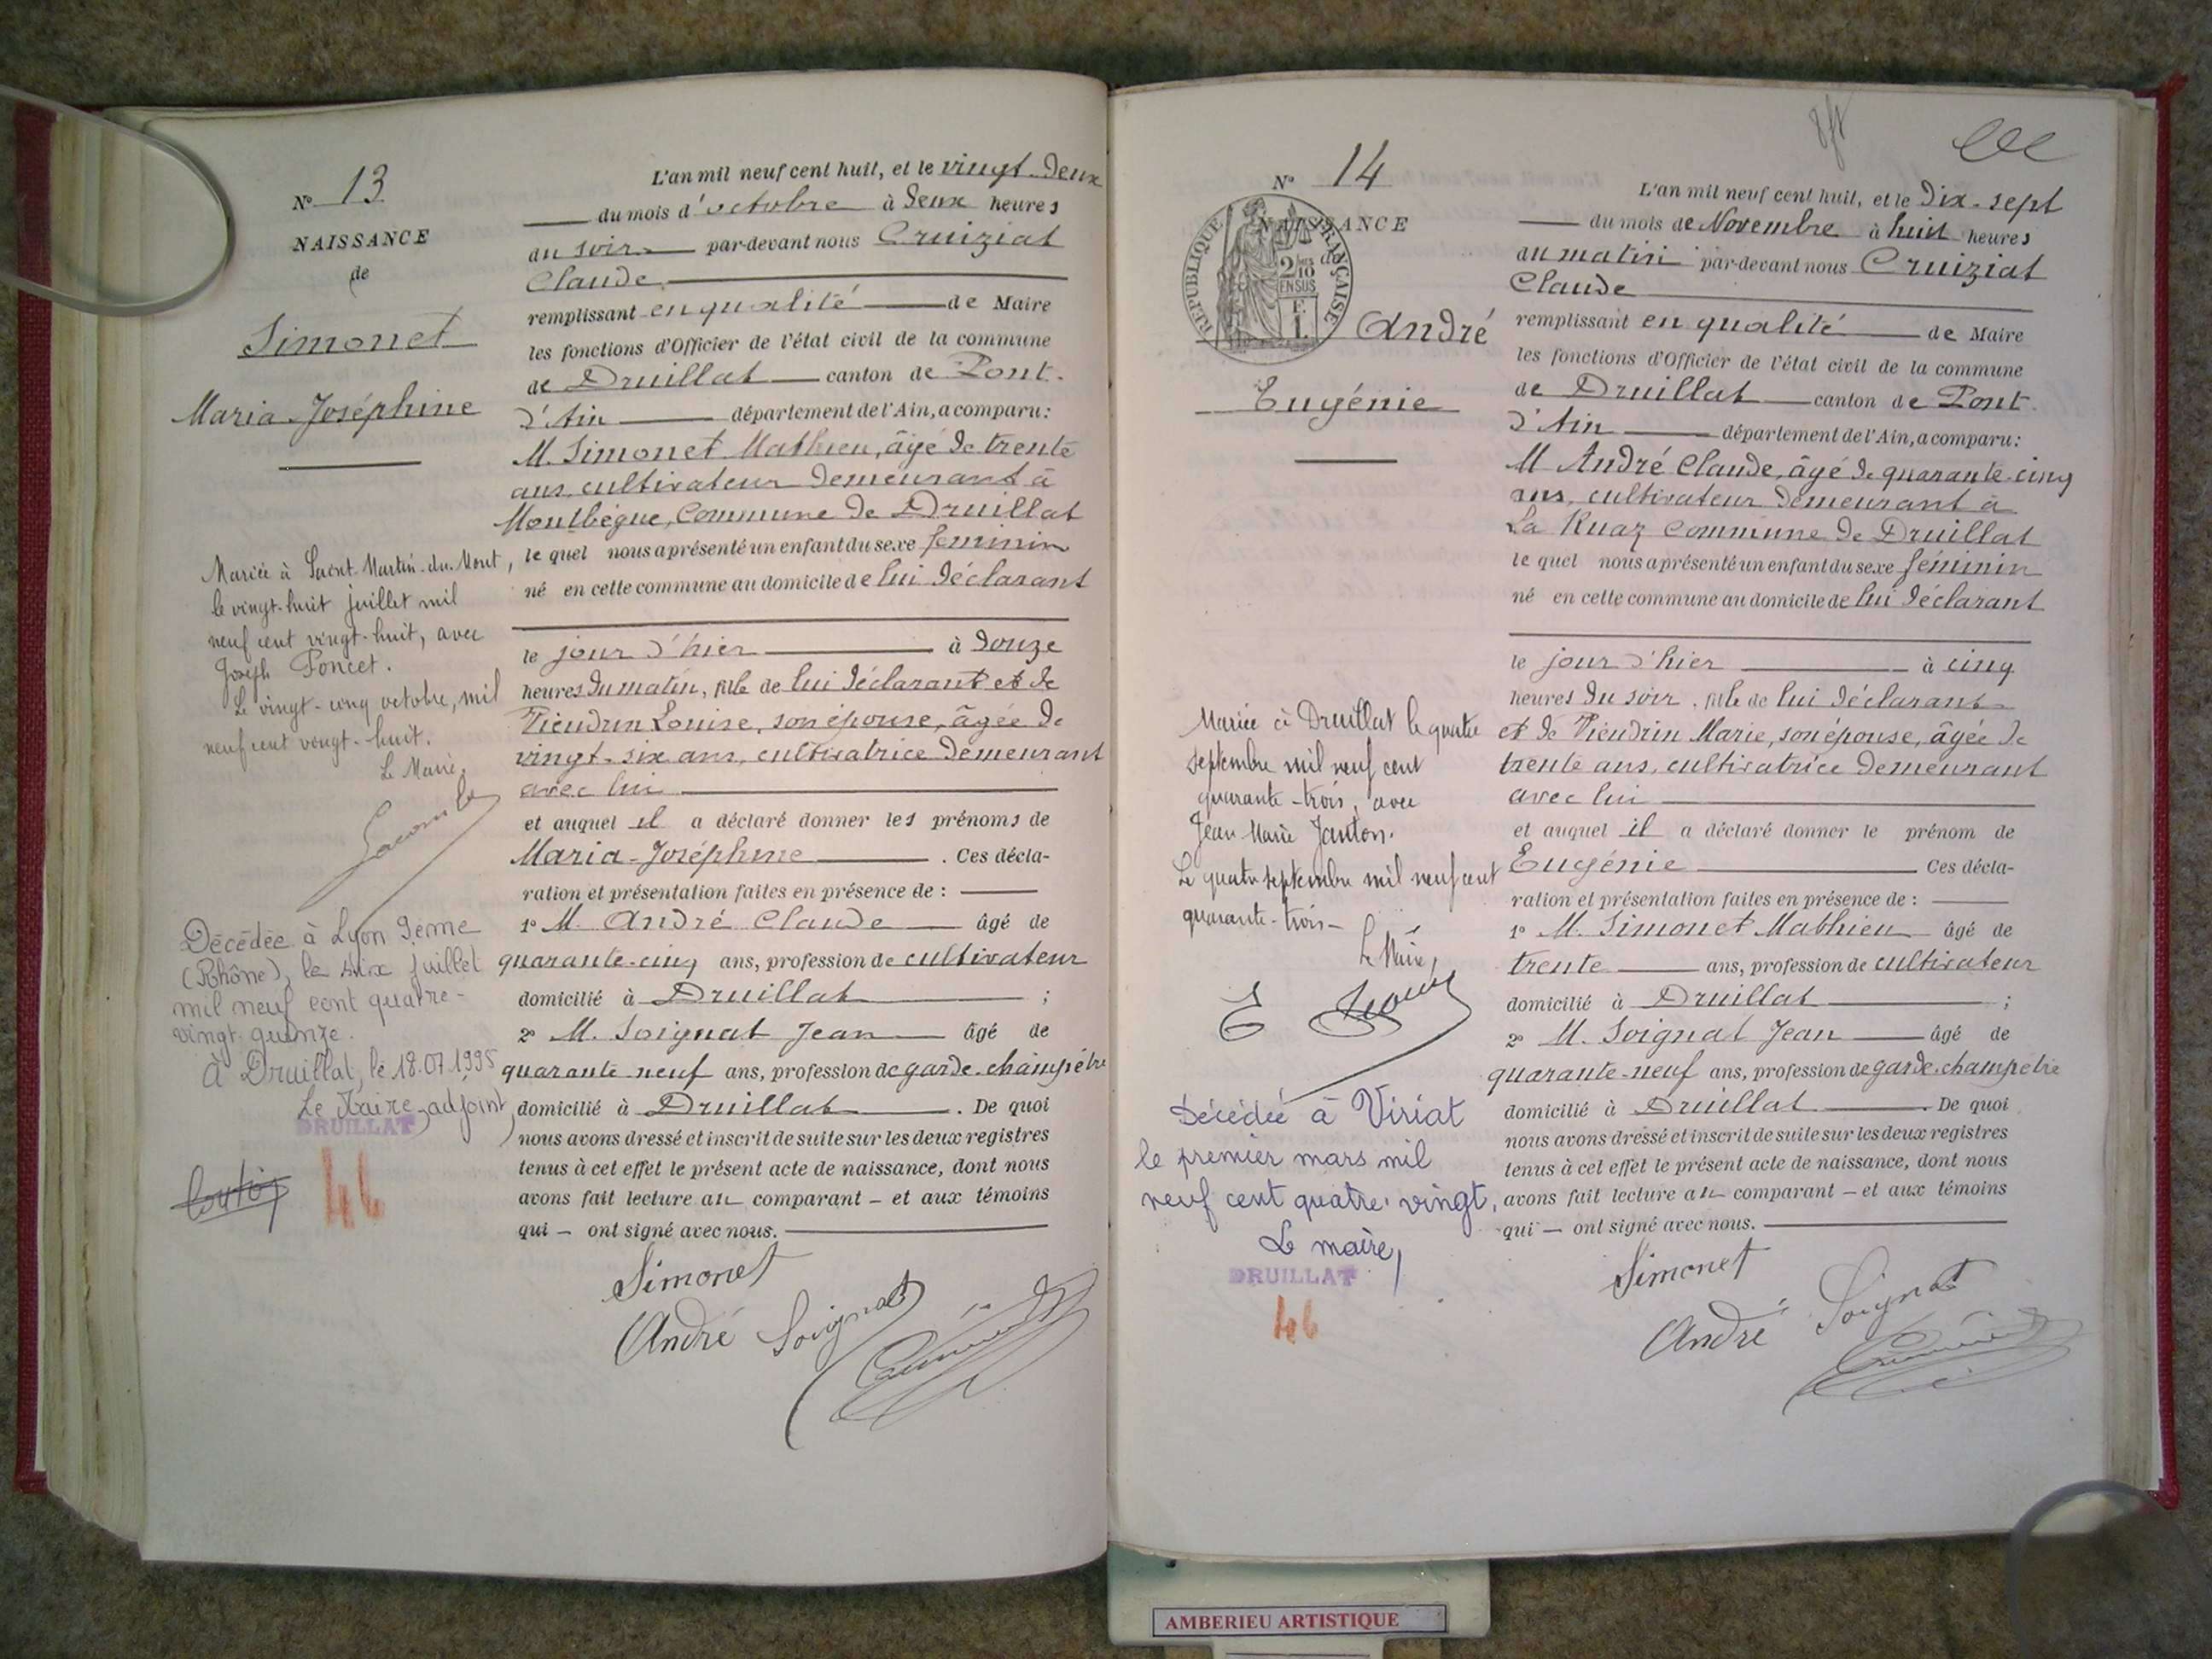 Nº 13
NAISSANCE
de
Simonet
Maria-Joséphine
Mariée à Saint-Martin-du-Mont,
le vingt-huit juillet mil
neuf cent vingt-huit, avec
Joseph Poncet.
Le vingt-cinq octobre, mil
neuf cent vingt-huit.
Le Maire,
Décédée à Lyon 9ème
(Rhône), le juillet
mil neuf cent quatre-
vingt-quinze.
à Druillat, le 18.07.1995
Le Maire-adjoint,
DRUILLAT
46
L'an mil neuf cent huit, et le vingt-deux
du mois d'octobre à deux heures
du soir par-devant nous Cruiziat
Claude
remplissant en qualité de Maire
les fonctions d'Officier de l'état civil de la commune
de Druillat canton de Pont-
d'Ain département de l'Ain, a comparu:
M. Simonet Mathieu, âgé de trente
ans, cultivateur demeurant à
Montbègue, Commune de Druillat
le quel nous a présenté un enfant du sexe féminin
né en cette commune au domicile de lui déclarant
le jour d'hier à douze
heures du matin, fille de lui déclarant et de
Vieudrin Louise, son épouse, âgée de
vingt-six ans, cultivatrice demeurant
avec lui
et auquel il a déclaré donner les prénoms de
Maria-Joséphine. Ces décla-
ration et présentation faites en présence de :
1º M. André Claude âgé de
quarante-cinq ans, profession de cultivateur
domicilié à Druillat ;
2º M. Soignat Jean âgé de
quarante-neuf ans, profession de garde-champêtre
domicilié à Druillat. De quoi
nous avons dressé et inscrit de suite sur les deux registres
tenus à cet effet le présent acte de naissance, dont nous
avons fait lecture au comparant – et aux témoins
qui – ont signé avec nous.
Simonet
André Soignat
Nº 14
NAISSANCE
de
RÉPUBLIQUE FRANÇAISE
2/10
EN SUS
André
Eugénie
Mariée à Druillat le quatre
septembre mil neuf cent
quarante-trois, avec
Jean Marie Janton.
Le quatre septembre mil neuf cent
quarante-trois-
Le Maire,
Décédée à Viriat
le premier mars mil
neuf cent quatre-vingt,
Le maire,
DRUILLAT
46
L'an mil neuf cent huit, et le dix-sept
du mois de Novembre à huit heures
du matin par-devant nous Cruiziat
Claude
remplissant en qualité de Maire
les fonctions d'Officier de l'état civil de la commune
de Druillat canton de Pont-
d'Ain département de l'Ain, a comparu:
M André Claude, âgé de quarante-cinq
ans, cultivateur demeurant à
La Ruaz commune de Druillat
le quel nous a présenté un enfant du sexe féminin
né en cette commune au domicile de lui déclarant
le jour d'hier à cinq
heures du soir, fille de lui déclarant
et de Vieudrin Marie, son épouse, âgée de
trente ans, cultivatrice demeurant
avec lui
et auquel il a déclaré donner le prénom de
Eugénie Ces décla-
ration et présentation faites en présence de :
1º M. Simonet Mathieu âgé de
trente ans, profession de cultivateur
domicilié à Druillat ;
2º M. Soignat Jean âgé de
quarante-neuf ans, profession de garde-champêtre
domicilié à Druillat. De quoi
nous avons dressé et inscrit de suite sur les deux registres
tenus à cet effet le présent acte de naissance, dont nous
avons fait lecture au comparant – et aux témoins
qui – ont signé avec nous.
Simonet
André Soignat
AMBERIEU ARTISTIQUE